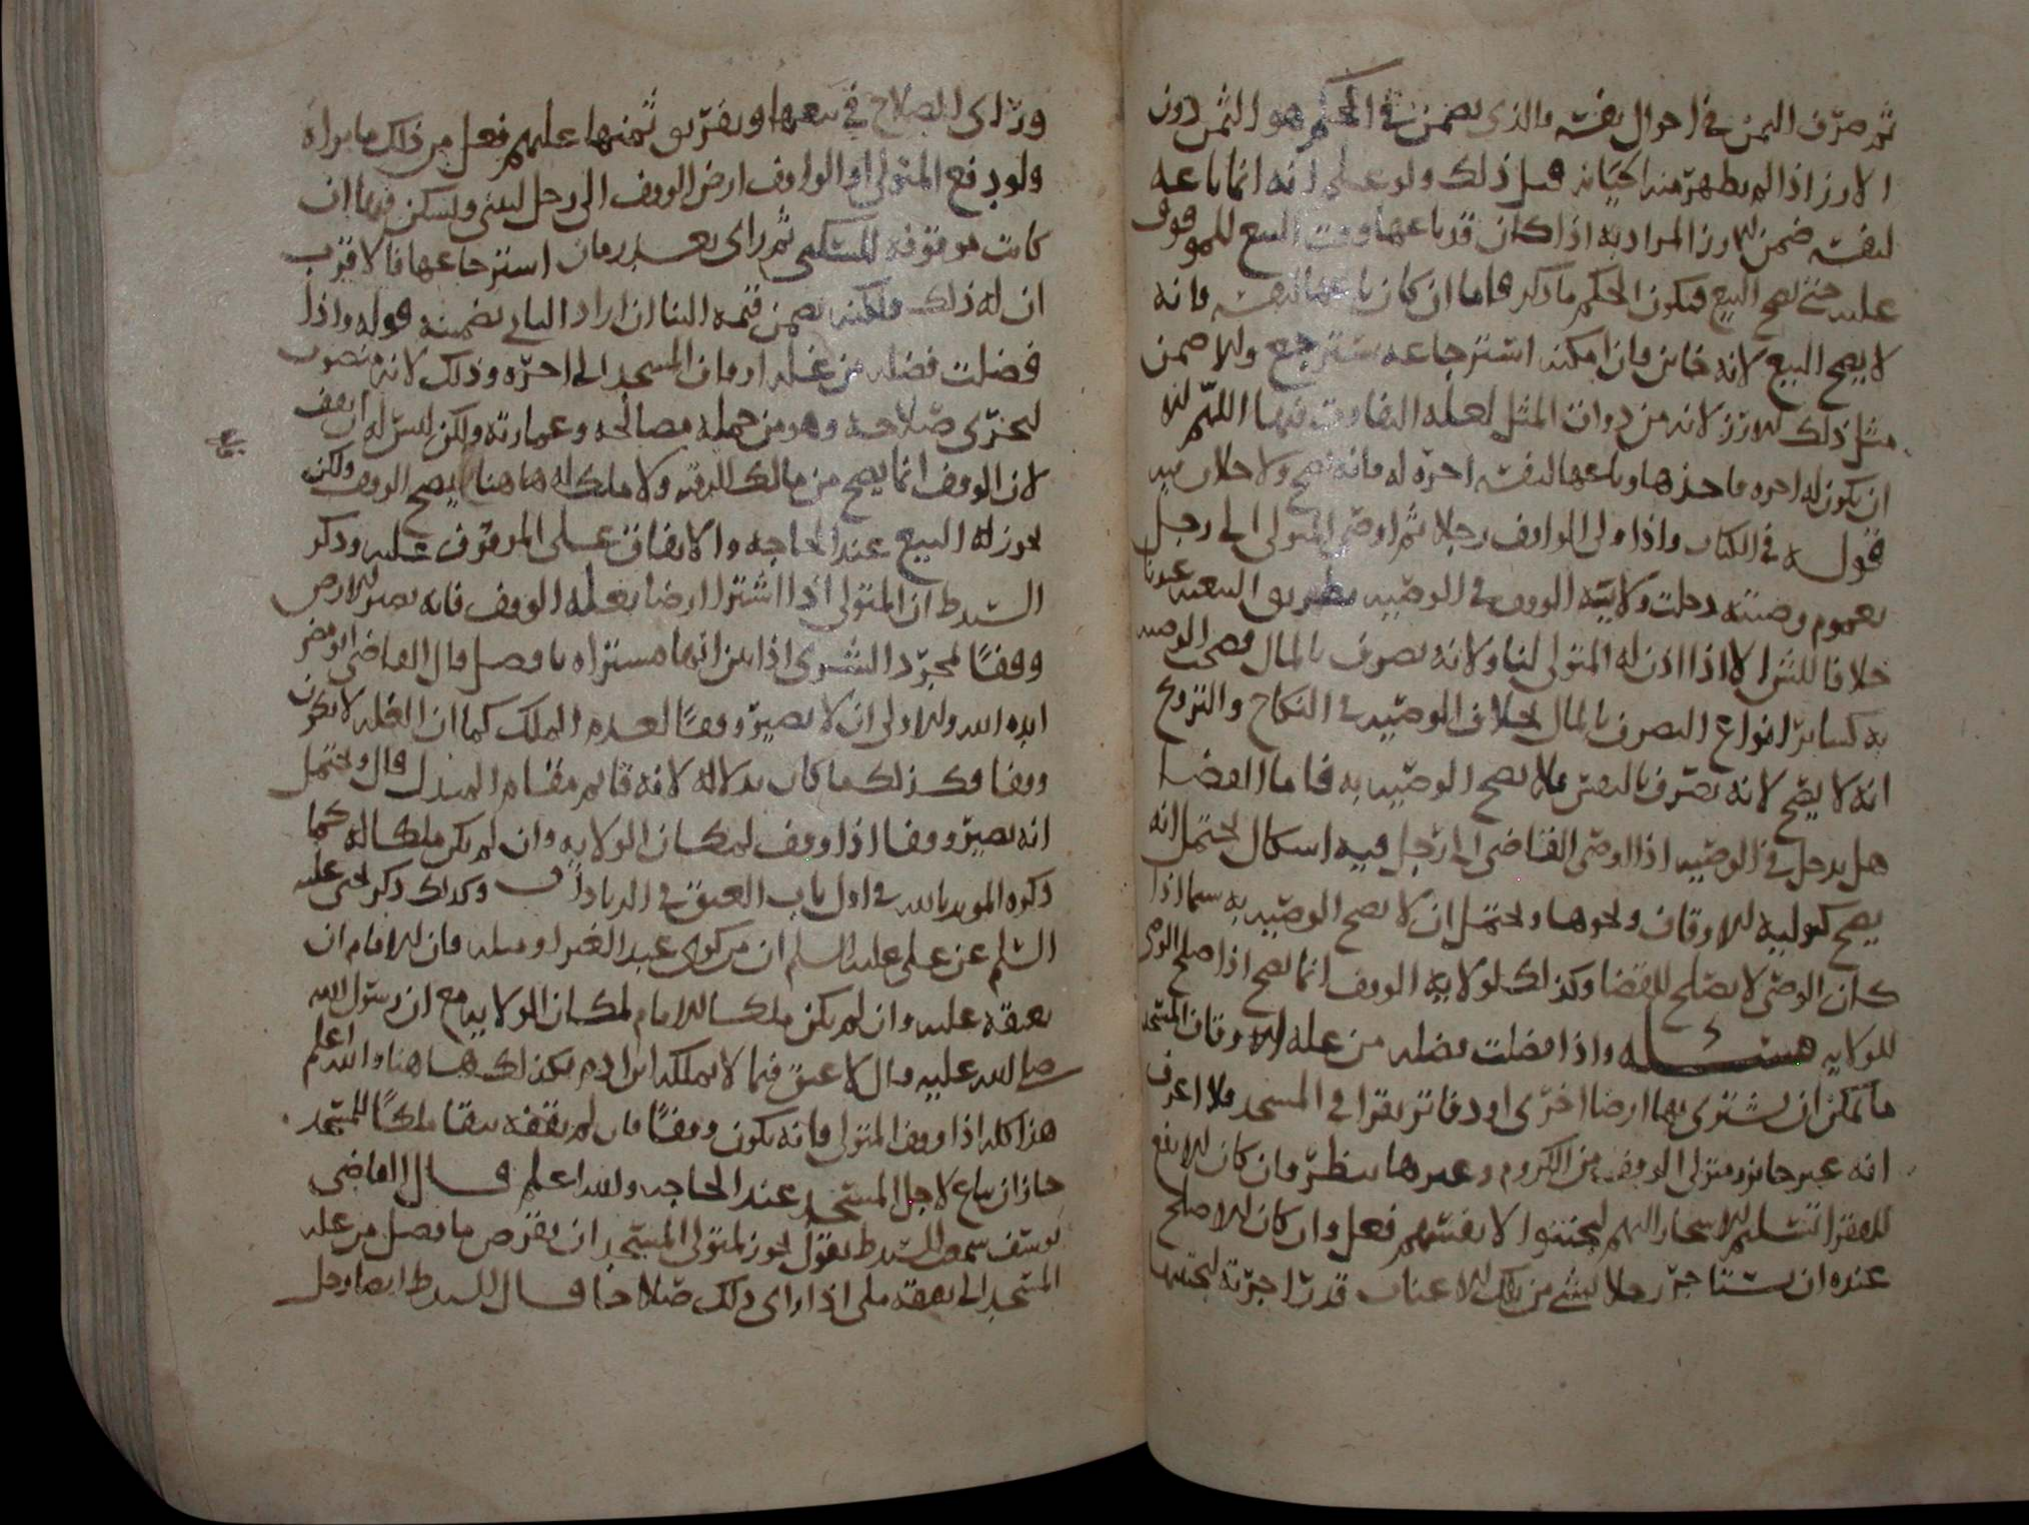 ثم صرف الثمن في احوال نفسه والذي يضمن في الحكم هو الثمن دون
الارز اذا لم يظهر منه خيانه قبل ذلك ولو علم انه انما باعه
لنفسه ضمن الارز المراد به اذا كان قد باعها وقت البيع للموقوف
عليه حتى يصح البيع فيكون الحكم ما ذكر فاما ان كان باعها لنفسه فانه
لا يصح البيع لانه خائن فان امكنه استرجاعه استرجع والا ضمن
مثل ذلك الارز لانه من ذوات المثل لعله التفاوت فيها اللهم الا
ان يكون له اجره فاخذها وباعها لنفسه اجره له فانه يصح ولا خلاف فيه
قوله في الكتاب واذا ولى الواقف رجلا ثم اوصى المتولي الى رجل
بعموم وصيته دخلت ولاية الوقف في الوصيه بطريق التبعيه عندنا
خلافا للش الا اذا اذن له المتولي لنا ولانه تصرف بالمال فصحت الوصيه
به كسائر انواع التصرف بالمال بخلاف الوصيه في النكاح والتزويج
انه لا يصح لانه تصرف بالنفس فلا تصح الوصيه به فاما القضا
هل يدخل في الوصيه اذا اوصى القاضي الى رجل فيه اشكال يحتمل انه
يصح كتوليه الاوقاف ونحوها ويحتمل ان لا تصح الوصيه به سيما اذا
كان الوصي لا يصلح للقضا وكذلك لولايه الوقف انما تصح اذا صلح الوصي
للولايه مسئله واذا فضلت فضله من غله اوقاف المسجد
ما يمكن ان يشترى بها ارضا اخرى او دفاتر يقرا في المسجد فلا اعرف
انه غير جائز ومتولي الوقف من الكروم وغيرها ينظر فان كان الانفع
للفقرا تسليم الاشجار اليهم ليجتنوا لانفسهم فعل وان كان الاصلح
عنده ان يستاجر رجلا بشي من تلك الاعناب قدر اجرته ليجتنيها
وراى الصلاح في بيعها وتفريق ثمنها عليهم فعل من ذلك ما يراه
ولو دفع المتولي او الواقف ارض الوقف الى رجل ليبني ويسكن فيها ان
كانت موقوفه للسكنى ثم راى بعد زمان استرجاعها فالاقرب
ان له ذلك ولكنه يضمن قيمه البنا ان اراد الباني تضمينه قوله واذا
فضلت فضله من غله اوقاف المسجد الى اخره وذلك لانه منصوب
لتحري صلاحه وهو من جمله مصالحه وعمارته ولكن ليس له ان يقف
لان الوقف انما يصح من مالك الرقبه ولا ملك له هاهنا يصح الوقف ولكن
يجوز له البيع عند الحاجه والانفاق على الموقوف عليه وذكر
السيد ط ان المتولي اذا اشترا ارضا بغله الوقف فانه تصير الارض
وقفا بمجرد الشرى اذا بين انها مشتراه بافضل قال القاضي ابو مضر
ايده الله والاولى ان لا يصير وقفا لعدم الملك كما ان الغله لا تكون
وقفا فكذلك ما كان بدلا له لانه قائم مقام المبدل قال ويحتمل
انه يصير وقفا اذا وقف لمكان الولايه وان لم يكن ملكا له كما
ذكره المويد بالله في اول باب العتق في الزيادات وكذلك ذكر يحيى عليه
السلم عن علي عليه السلم ان من كوى عبد الغير او مثله فان للامام ان
يعتقه عليه وان لم يكن ملكا للامام لمكان الولايه مع ان رسول الله
صلى الله عليه قال لا عتق فيما لا يملك ابن ادم فكذلك هاهنا والله اعلم
هذا كله اذا وقف المتولي فانه يكون وقفا فان لم يقفه يبقا ملكا للمسجد
جاز ان يباع لاجل المسجد عند الحاجه والله اعلم قال القاضي
يوسف سمعت السيد ط يقول يجوز لمتولي المسجد ان يقرض ما فضل من غله
المسجد الى ثقه ملي اذا راى ذلك صلاحا قال السيد ط ايضا وجل